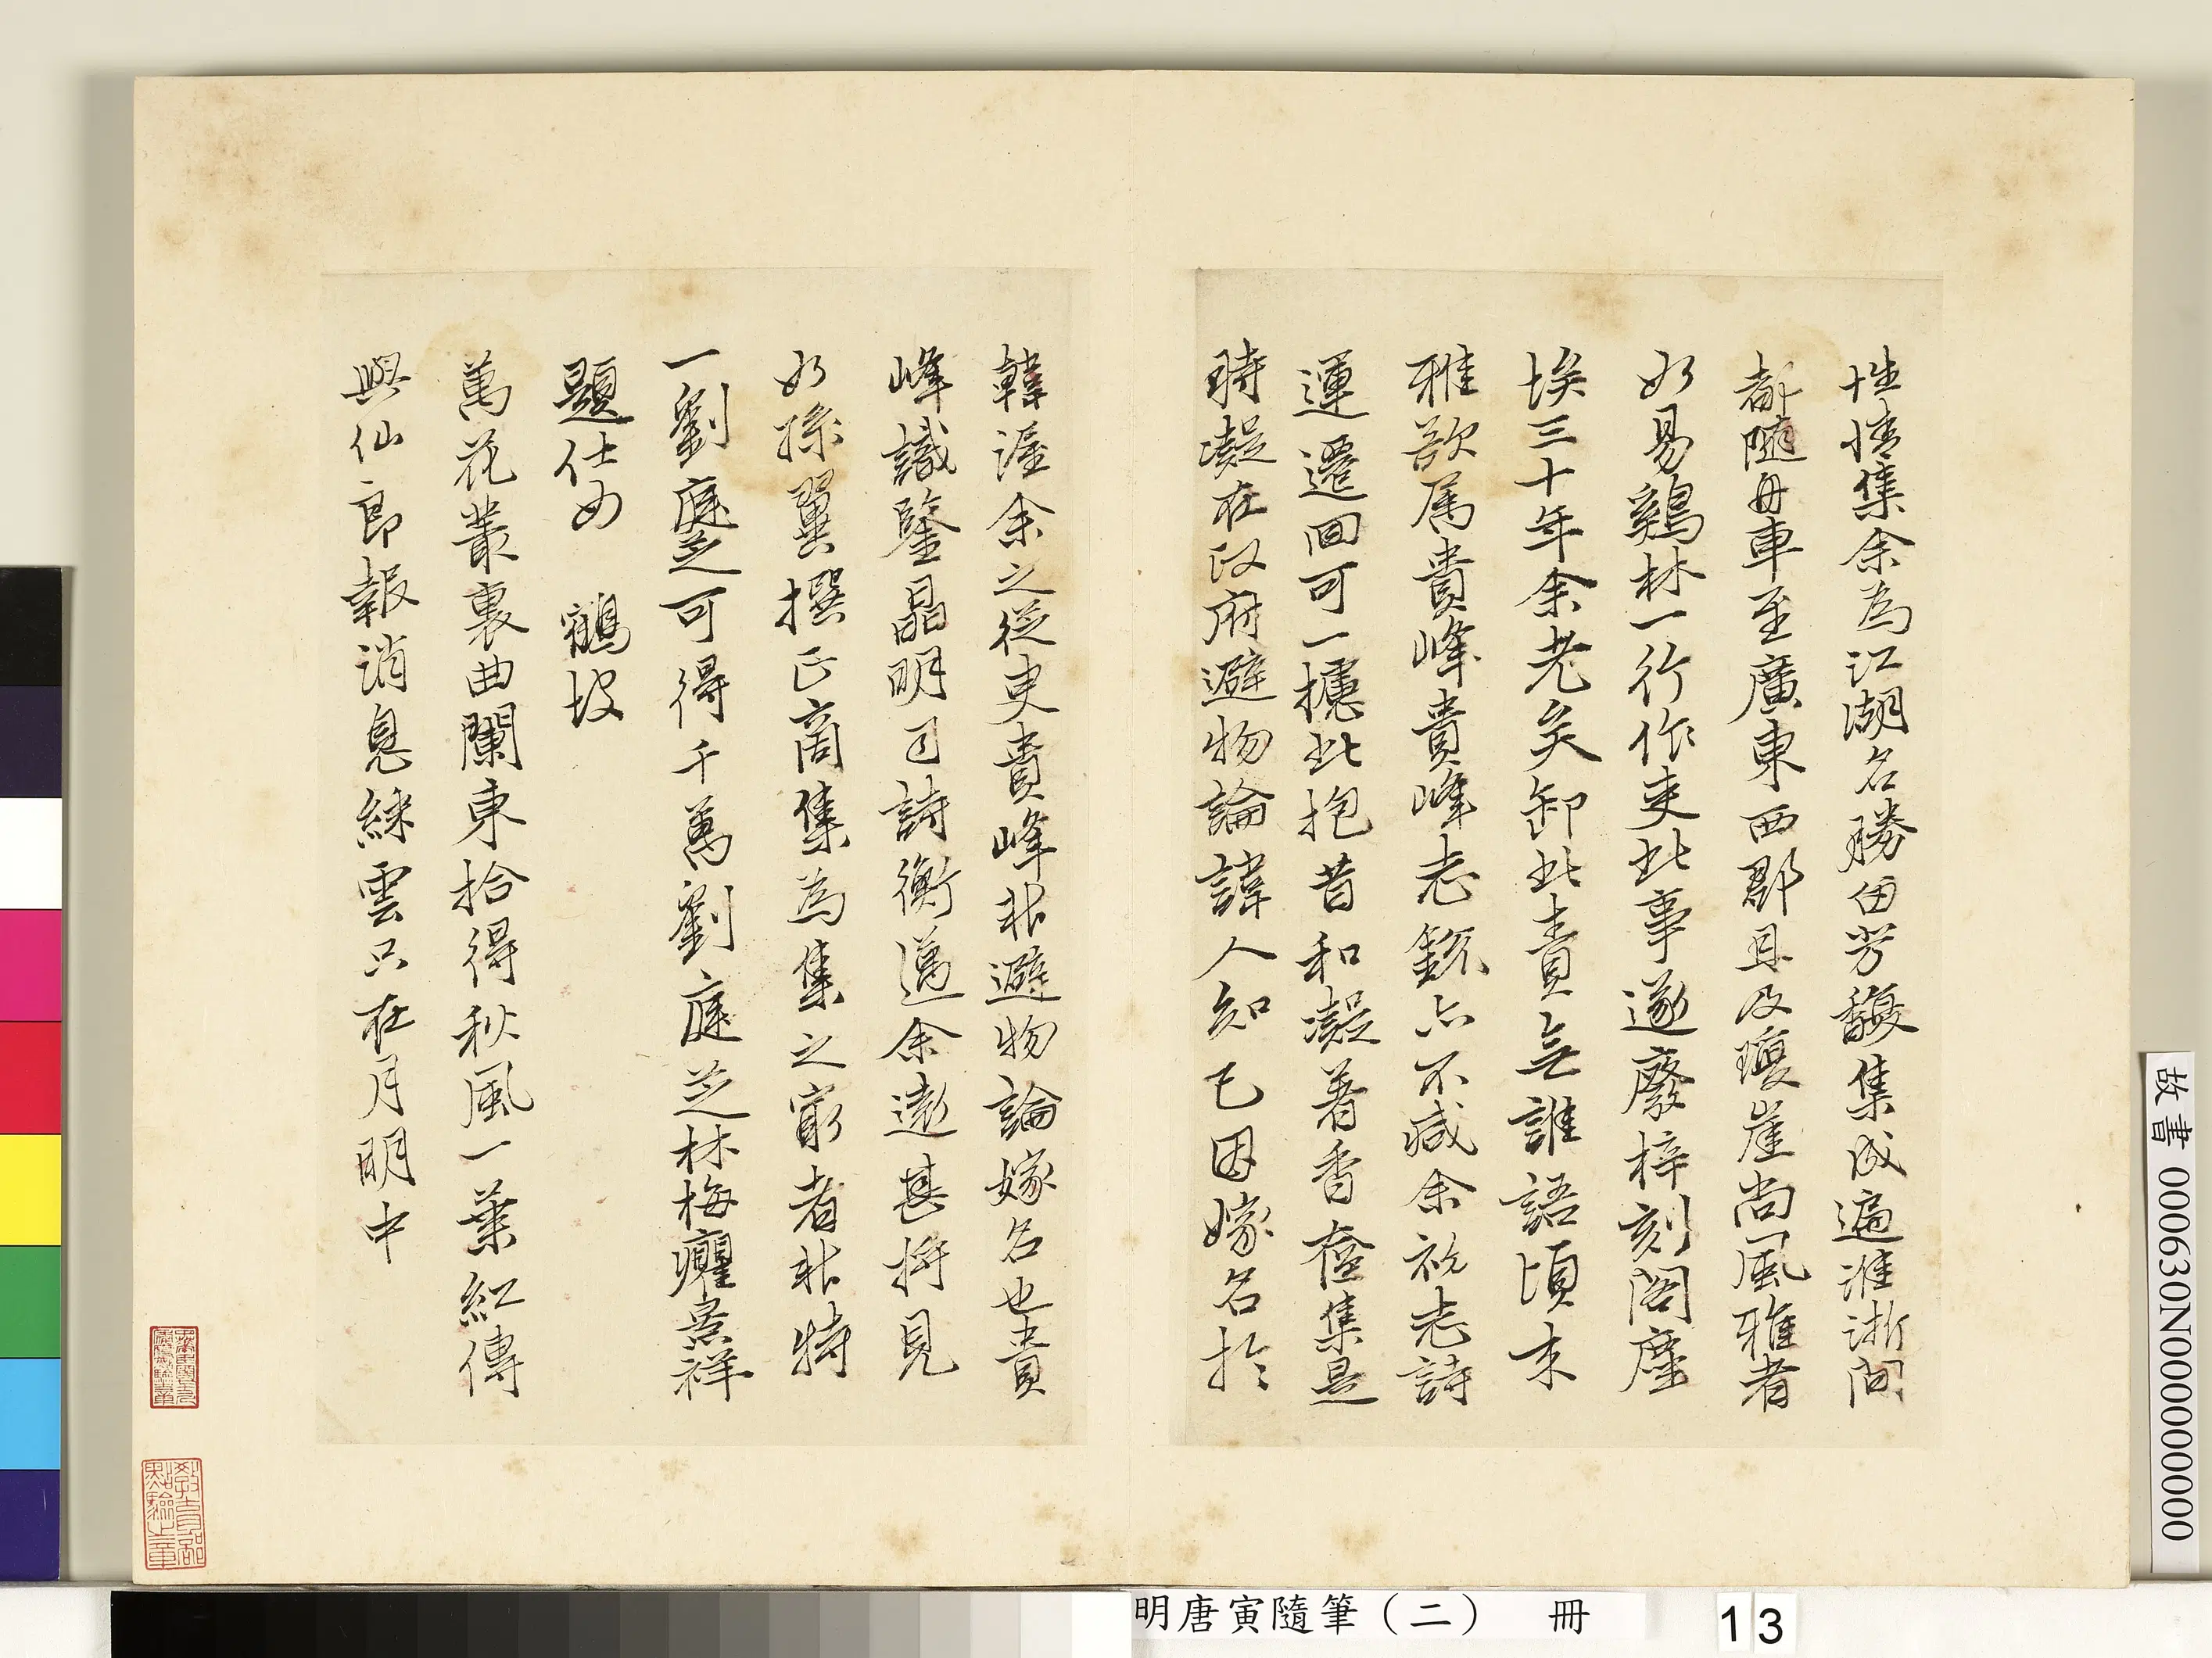 性情集余為江湖名勝留芳馥集成遍淮浙間
都隨舟車至廣東西郡且及瓊崖尚風雅者
如易鷄林一行作吏此事遂廢梓刻閣塵
埃三十年余老矣卸此責無誰語頃末
雅歆属貴峰貴峰志銳亦不減余初志詩
運還回可一攄此抱昔和凝著香奩集是
時凝在政府避物論諱人知已因嫁名於
韓渥余之從吏貴峰非避物論嫁名也貴
峰識鑒晶明司詩衡邁余遠甚將見
如孫翼撰正商集為集之家者非特
一劉庭芝可得千萬劉庭芝林梅癯景祥
題仕女 鶴坡
萬花叢裏曲闌東拾得秋風一葉紅傳
與仙郎報消息綵雲只在月明中
教育部點驗之章
明唐寅隨筆（二） 冊
13
故書 000630N000000000